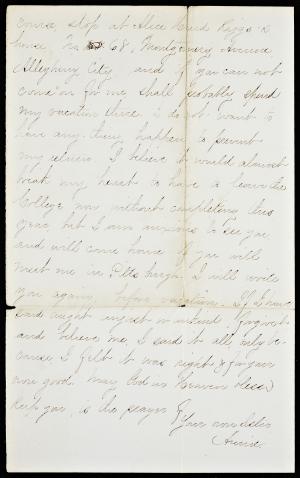 course stop at Alice Reed Riggs's
house, No 68, Montgomery Avenue
Allegheny City, and if you can not
come on for me shall probably spend
my vacation there. I do not want to
have any thing happen to prevent
my return. I believe it would almost
break my heart to have to leave the
College now without completing this
year, but I am anxious to see you
and will come home if you will
meet me in Pittsburgh. I will write
you again, before vacation. If I have
said aught unjust or unkind forgive it
and believe me, I said it all, only be-
cause I felt it was right & for your
more good. May God in Heaven bless &
keep you, is the prayer of
Your own sister
Annie.